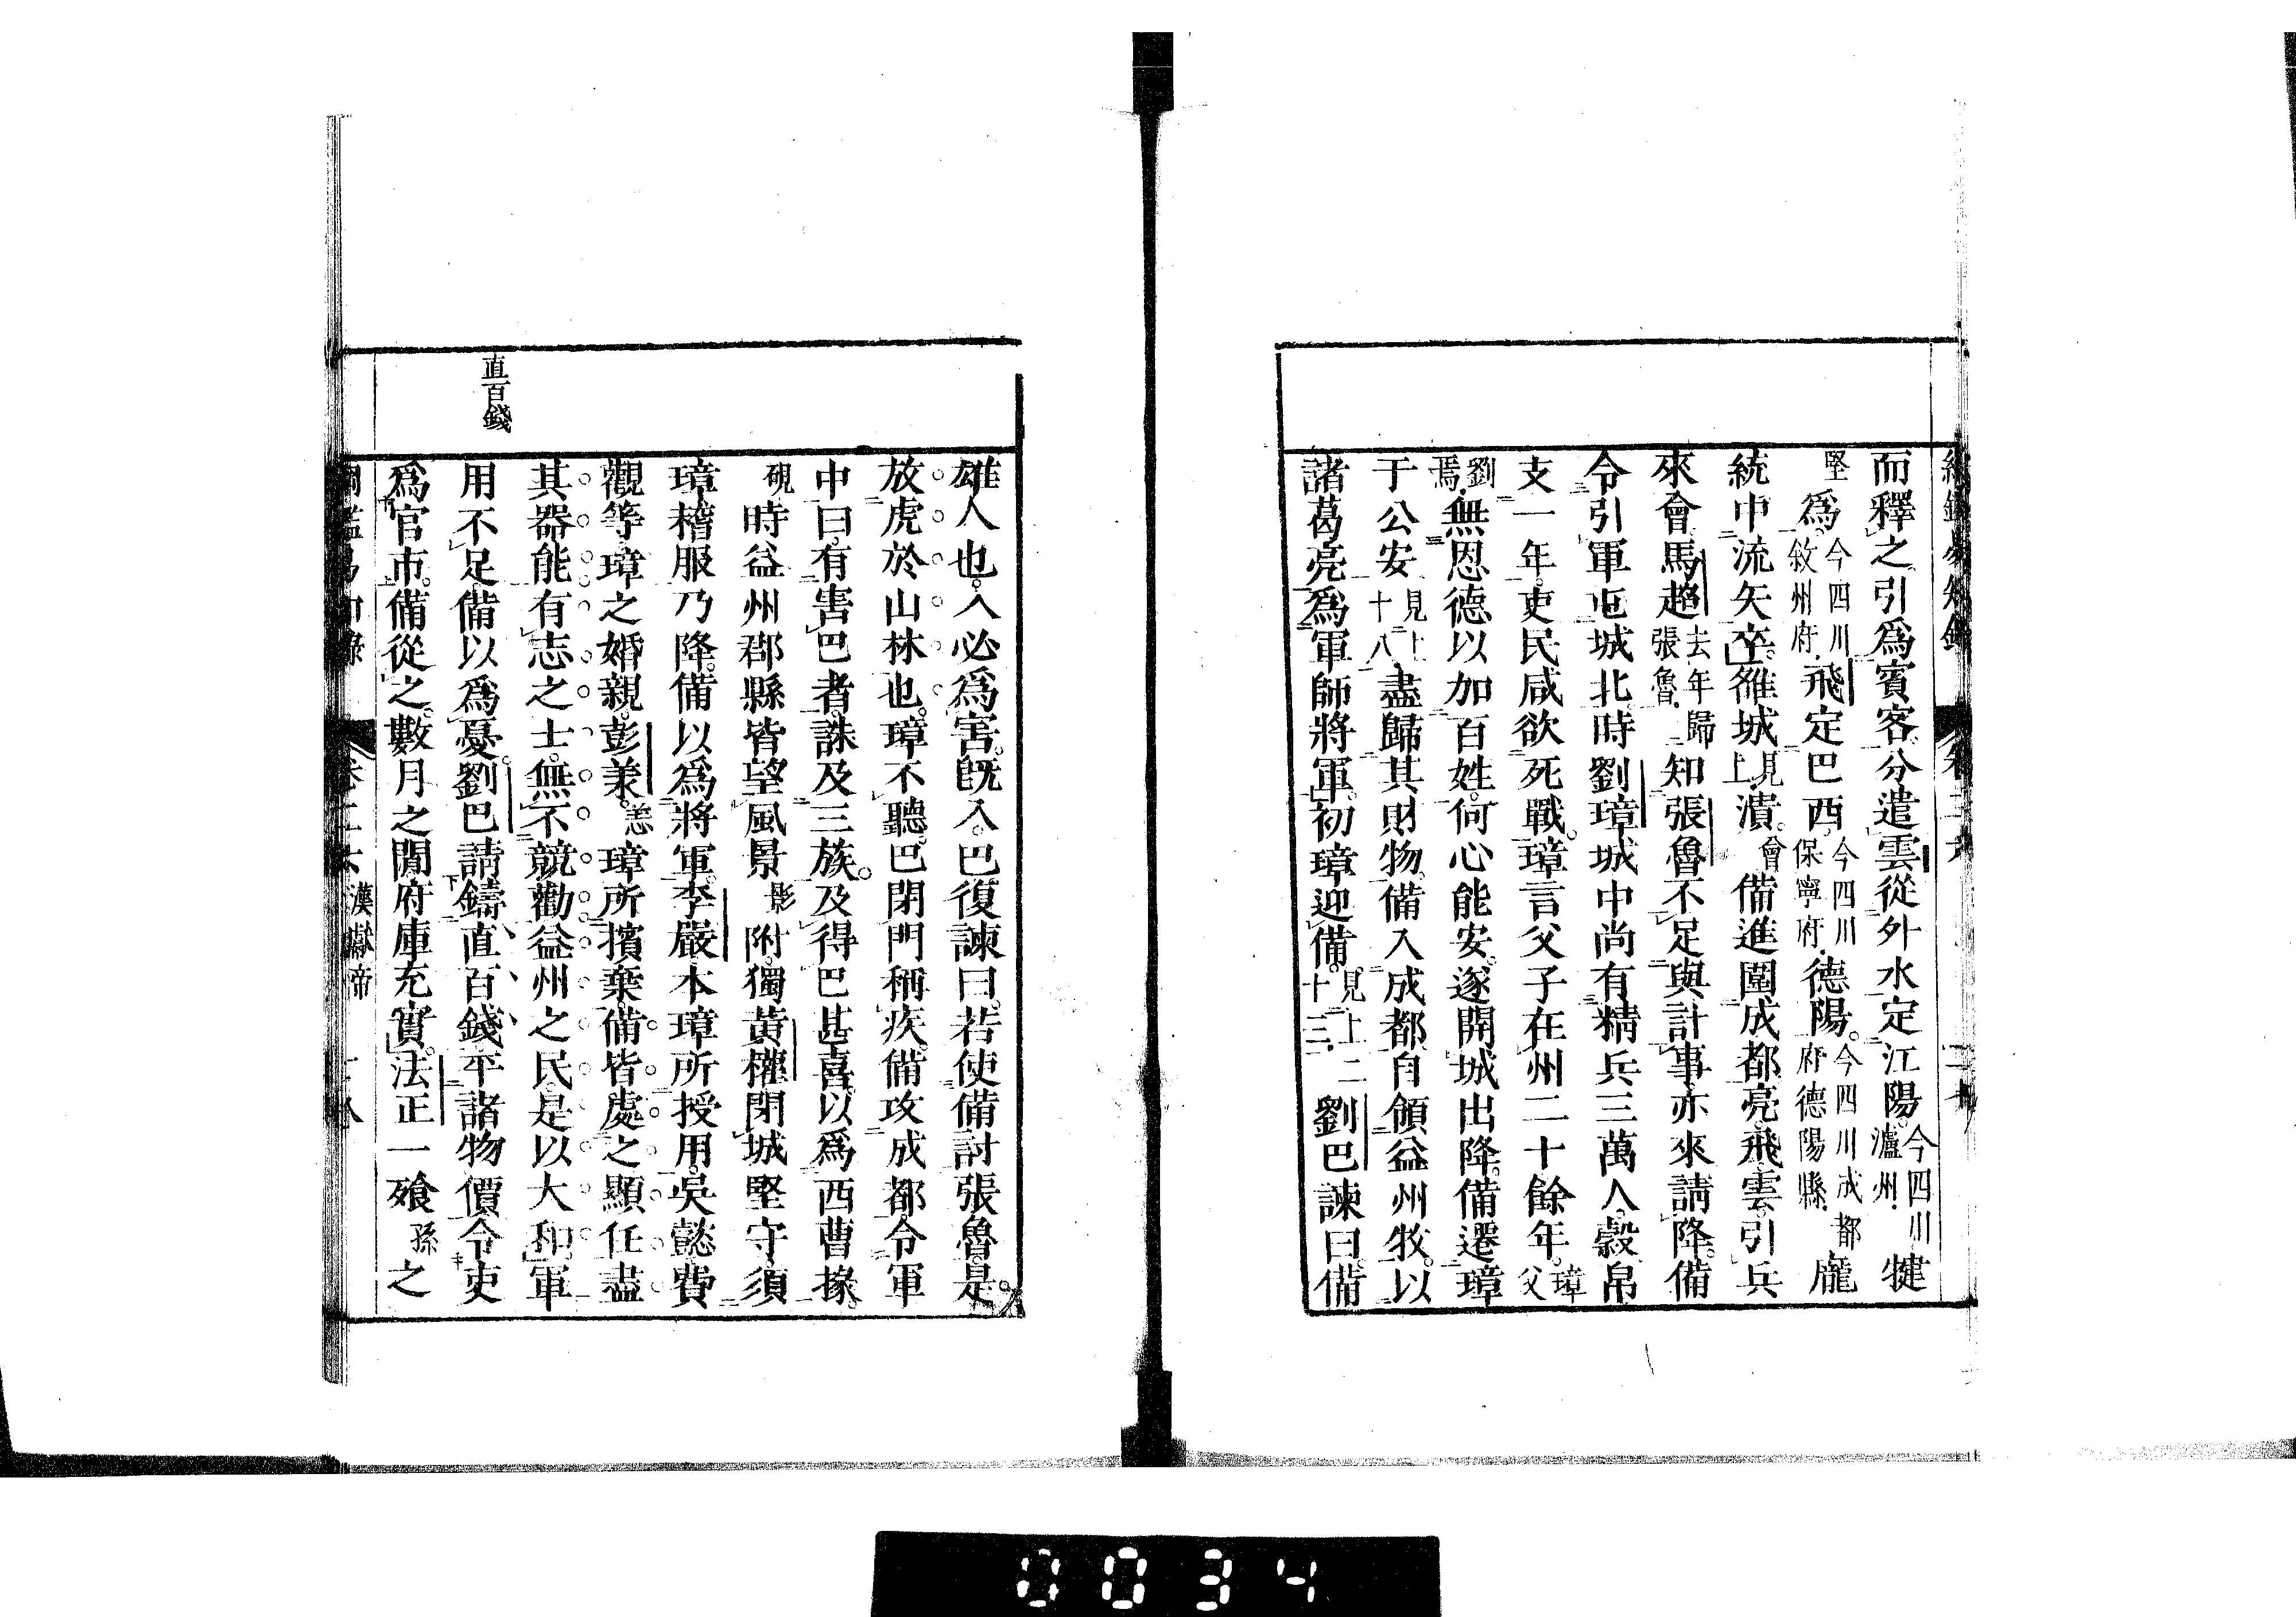 而釋之。引爲賓客。分遣雲從外水定江陽。今四川瀘州。犍
爲。今四川敘州府。飛定巴西。今四川保寧府。德陽。今四川成都府德陽縣。龐
統中流矢卒。雒城見上。潰。會備進圍成都。亮飛雲。引兵
來會。馬超去年歸張魯。知張魯不足與計事。亦來請降。備
令引軍屯城北。時劉璋城中尚有精兵三萬人。穀帛
支一年。吏民咸欲死戰。璋言父子在州二十餘年。璋父
劉焉。無恩德以加百姓。何心能安。遂開城出降。備遷璋
于公安見上十八。盡歸其財物。備入成都。自領益州牧。以
諸葛亮爲軍師將軍。初璋迎備。見上二十二。劉巴諫曰。備
雄人也。入必爲害。旣入。巴復諫曰。若使備討張魯。是
放虎於山林也。璋不聽。巴閉門稱疾。備攻成都。令軍
中曰。有害巴者。誅及三族。及得巴甚喜。以爲西曹掾。
硯時益州郡縣皆望風景影附。獨黃權閉城堅守。須
璋稽服乃降。備以爲將軍。李嚴本璋所授用。吳懿費
觀等璋之婚親。彭羕。恙璋所擯棄。備皆處之顯任。盡
其器能。有志之士。無不競勸。益州之民。是以大和。軍
直百錢
用不足。備以爲憂。劉巴請鑄直百錢。平諸物價。令吏
爲官市。備從之。數月之閒。府庫充實。法正一飧孫之
漢獻帝
0034